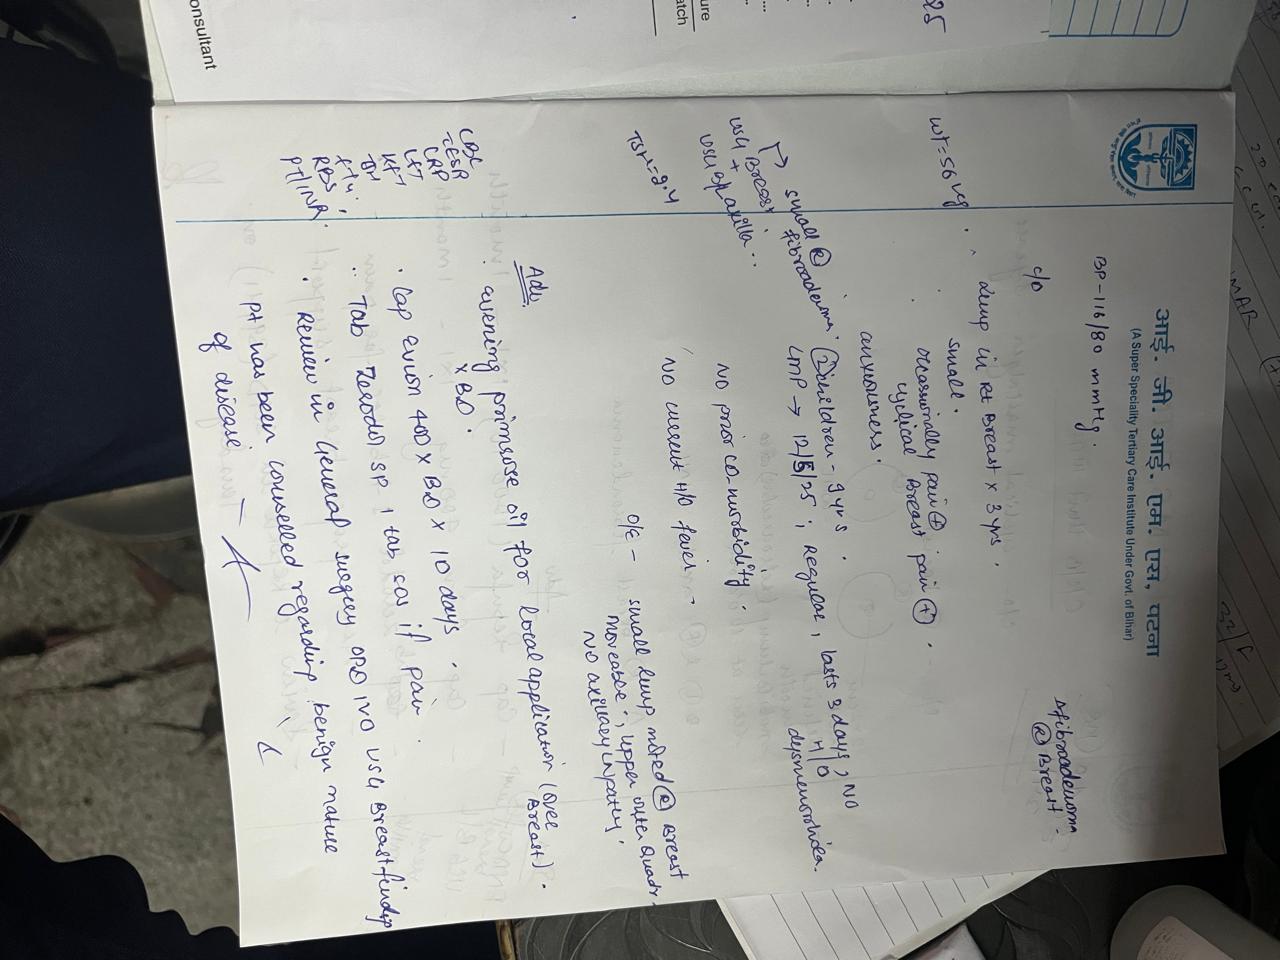 आई. जी. आई. एम. एस, पटना
(A Super Speciality Tertiary Care Institute Under Govt. of Bihar)
BP-116/80 mmHg.
fibroadenoma
Ⓡ Breast.
c/o
wt=56 kg
Lump in Rt Breast x 3 yrs.
small.
occasionally pain ⊕
cyclical Breast pain ⊕.
anxiousness.
USG Breast
+
USG B/L axilla..
small Ⓡ
fibroadenoma.
② children - 9 yrs.
LMP → 12/5/25; Regular, lasts 3 days, NO
H/O
dysmenorrhea.
NO prior co-morbidity.
NO current H/O fever
TSH=2.4
O/E - small lump noted Ⓡ Breast
moveable, upper outer quadr.
NO axillary LNpathy
Adv.
evening primrose oil for local application (over
Breast).
x BD.
Cap evion 400 x BD x 10 days.
Tab Zerodol SP 1 tab sos if pain.
Review in General surgery OPD IVO USG Breast findings
Pt has been counselled regarding benign nature
of disease
CBC
ESR
CRP
LFT
KFT
RBS
PT/INR.
onsultant
ure
atch
25
MAR
32/F